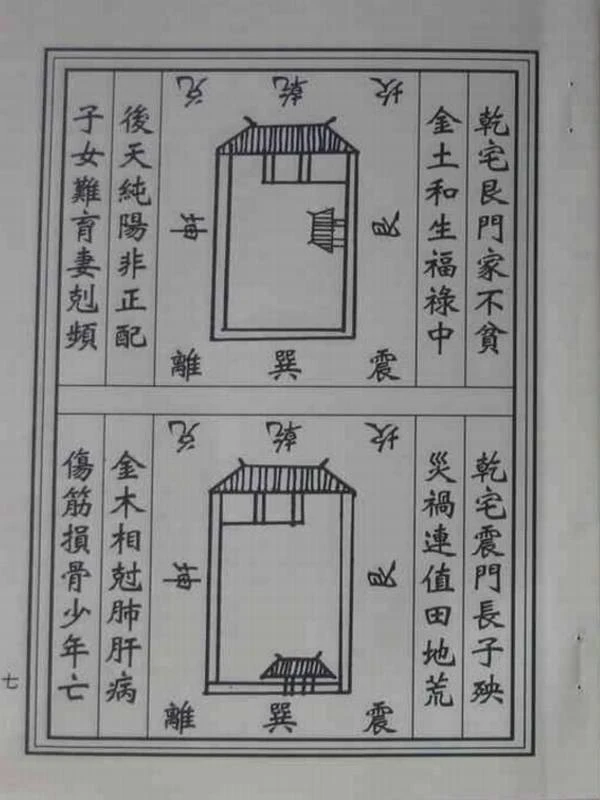 乾宅艮門家不貧
金土和生福祿中
坎
乾
兌
艮
坤
震
巽
離
後天純陽非正配
子女難育妻剋頻
乾宅震門長子殃
災禍連值田地荒
坎
乾
兌
艮
坤
震
巽
離
金木相尅肺肝病
傷筋損骨少年亡
七